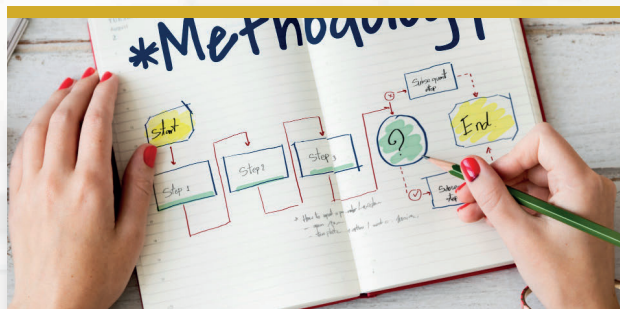 *Methodology
Start
Step 1
Step 2
Step 3
?
Subsequent
step
End
step